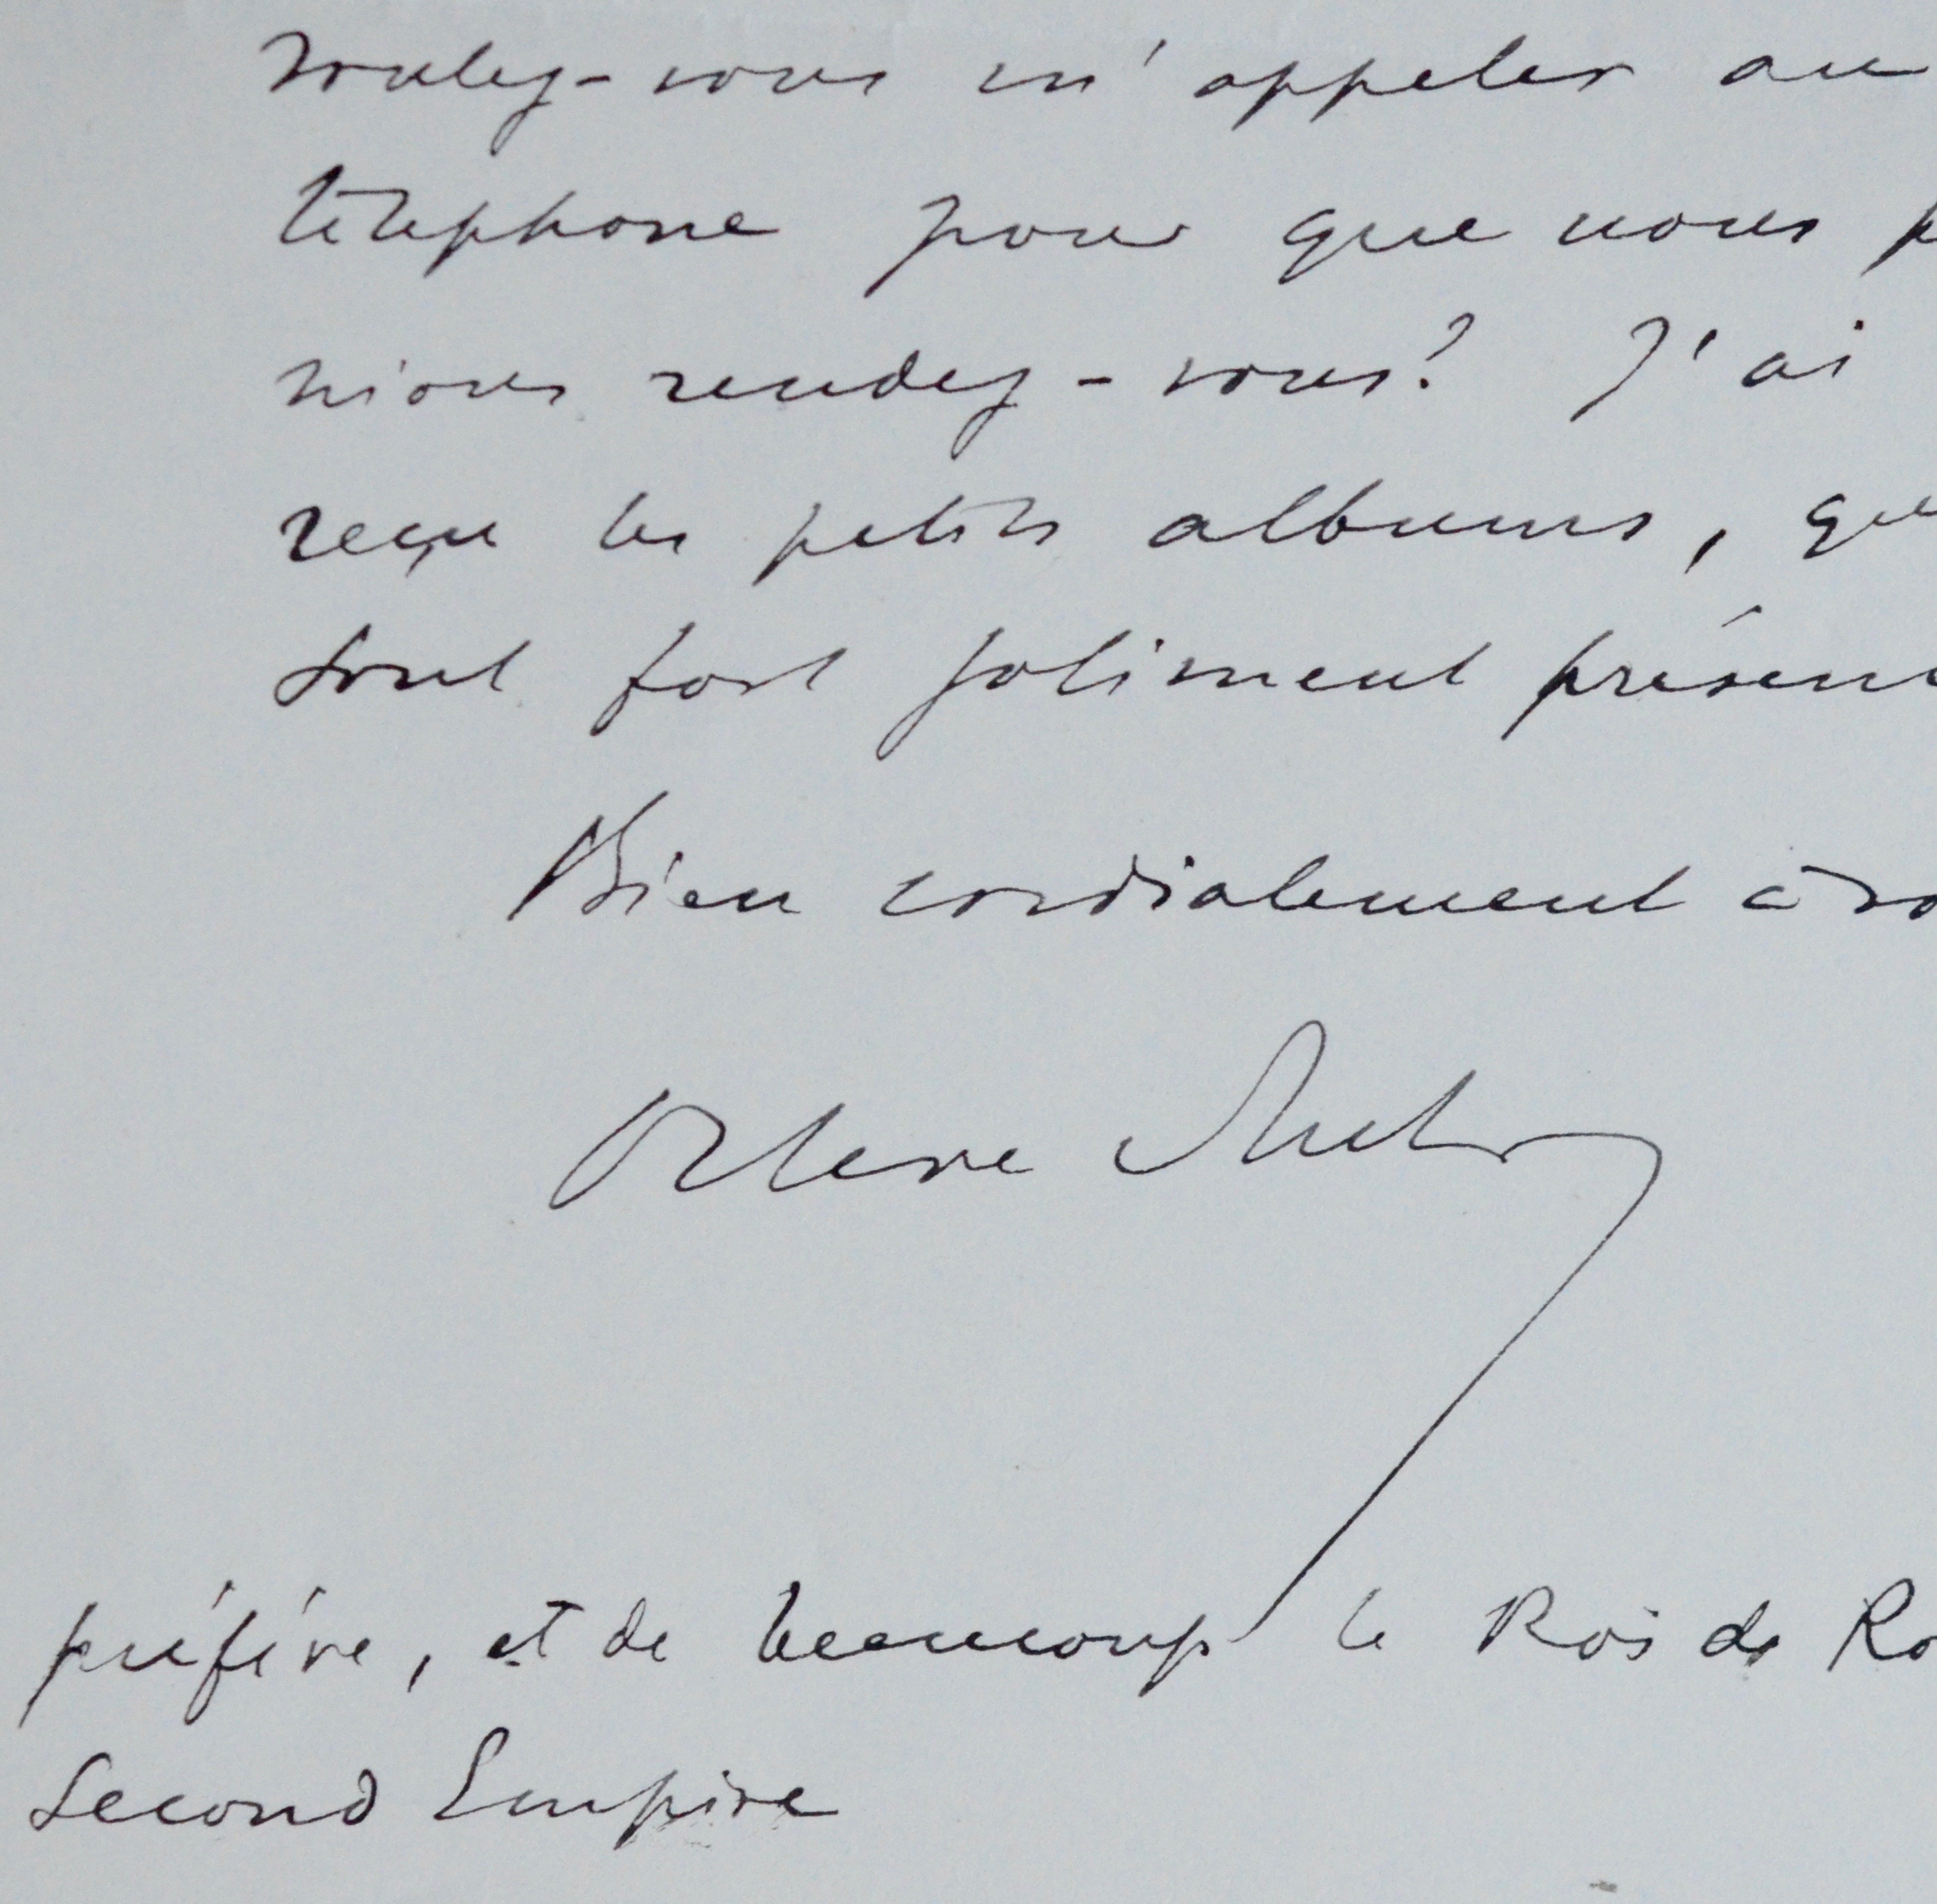 Voulez-vous m'appeler au
téléphone pour que nous p
nions rendez-vous? J'ai
reçu les petits albums, qu
sont fort joliment présen
Bien cordialement à vo
Octave Aubry
préfère, et de beaucoup le Roi de Ro
Second Empire